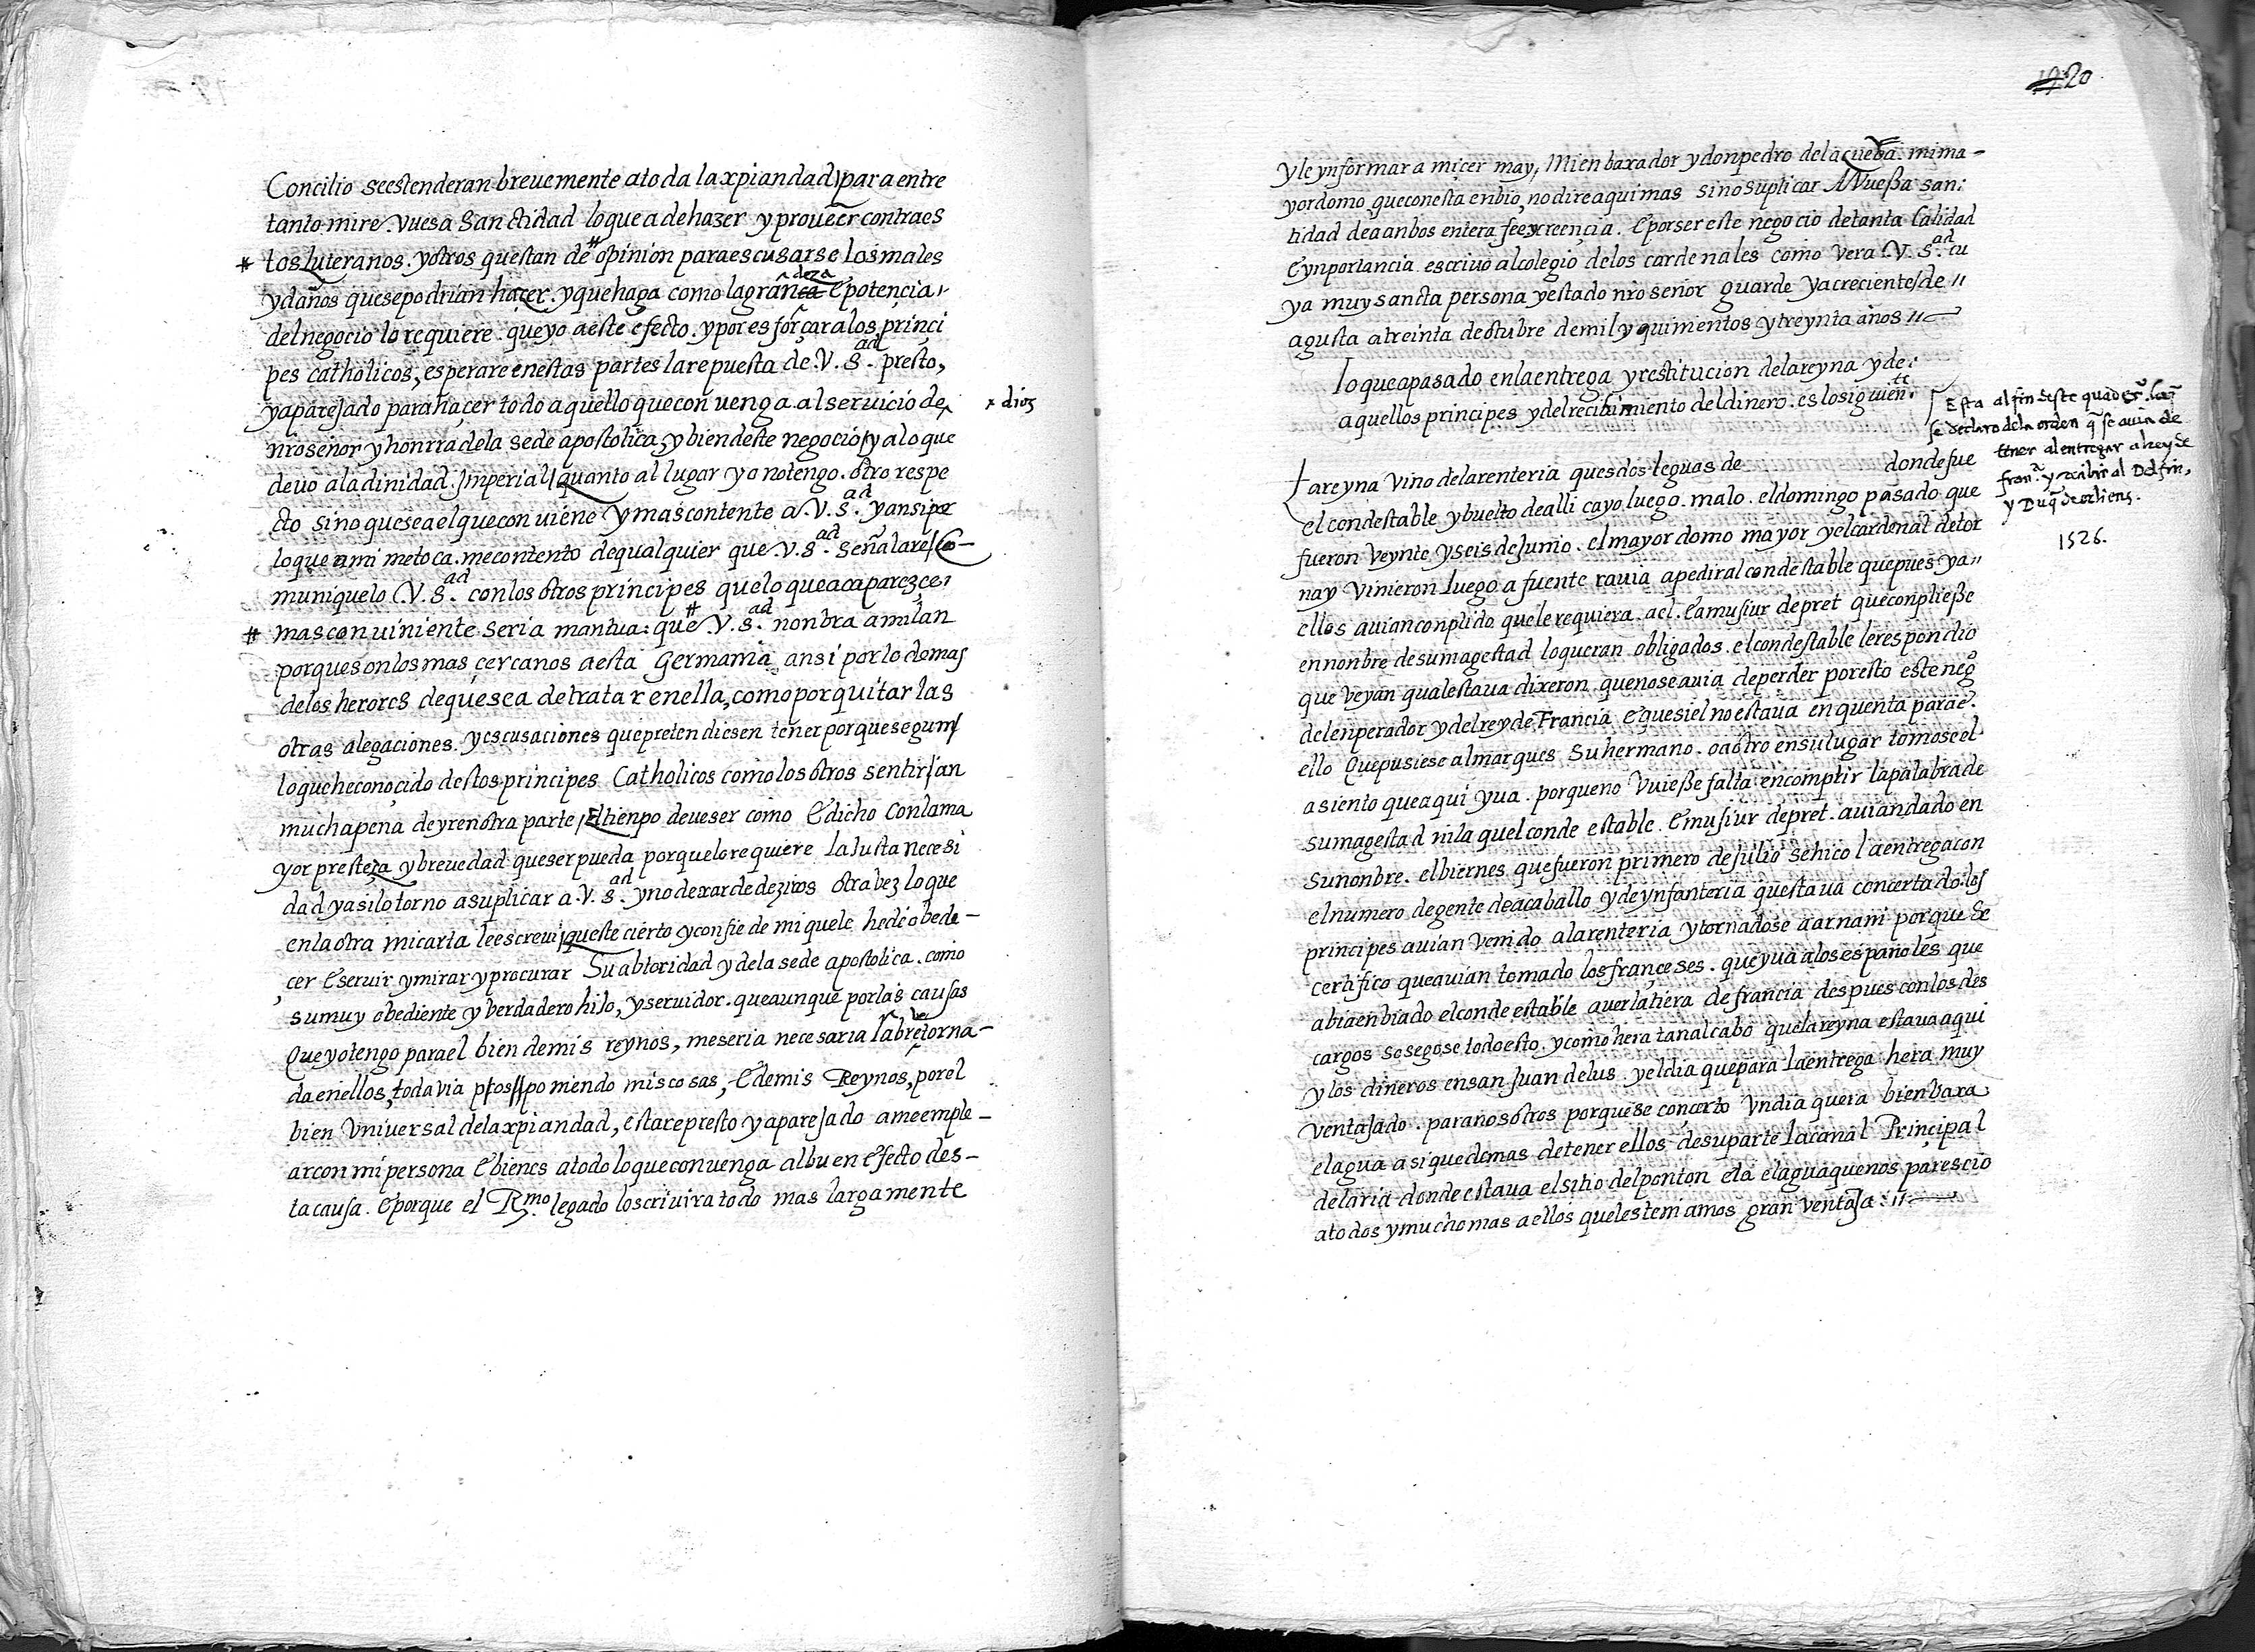 Concilio seestenderan brevemente atoda laxpiandad para entre
tanto mire .Vuesa Sanctidad loque adehazer y proveer contraes
# tos luteranos. yotros questan de # opinion paraescusarse losmales
ydaños quesepodrian haçer. yquehaga como lagrandeza Epotençia
delnegocio lorequiere. queyo aeste efecto. ypor esforçaralos prinçi
pes catholicos, esperare enestas partes larepuesta de .V. S.ad presto,
yaparejado parahaçer todo aquello quecon venga. alservicio de x dios
nroseñor yhonrra dela sede apostolica, ybien deste negocio y aloque
devo ala dinidad. Jmperial quanto al lugar yo notengo. otro respe
cto sino quesea elquecon viene y mas contente a .V. S.ad yansi por
loque ami metoca. mecontento dequalquier que .V. S.ad Señalare Co-
muniquelo .V. S.ad conlos otros principes queloqueacaparezçe
# mascon uiniente seria mantua: que # .V. S.ad nonbra amilan
porquesonlosmas çercanos aesta Germania ansi porlo demas
delos herores dequesea detratar enella, como por quitar las
otras alegaciones. yescusaciones quepretendiesen tener porque segun
loqueheconoçido destosprincipes Catholicos como los otros sentirian
muchapena deyrenotra parte Eltienpo deveser como Edicho Conlama
yor presteza ybrevedad queser pueda porquelorequiere laJusta necesi
dad yasilotorno asuplicar a .V. S.ad yno dexar de deziros otra vez lo que
enla otra micarta leescrevi queste cierto yconfie de mi quele hedeobede-
çer Eservir ymirar yprocurar Su abtoridad ydela sede apostolica. como
sumuy obediente yverdadero hijo, yservidor. queaunque porlas causas
Queyotengo parael bien demis reynos, meseria necesaria labretorna-
da enellos, todavia postponiendo miscosas, Edemis Reynos, porel
bien Vniversal delaxpiandad, estarepresto yaparejado ameemple-
arcon mi persona Ebienes atodoloqueconvenga albuen Efecto des-
tacausa. Eporque el Rmo legado loscrivira todo mas largamente
20
Yle ynformar a miçer may, Mienbaxador ydonpedro dela cueba. mima-
yordomo queconesta enbio, nodireaqui mas sinosuplicar AVueßa san:
tidad dea anbos entera feeycreençia. Eporser este negocio detanta Calidad
Eynportancia. escrivo alcolegio delos cardenales como vera .V. S.ad cu
ya muy sancta persona yestado nro señor guarde yacreciente de
agusta atreinta deotubre demil y quinientos ytreynta años
loqueapasado enlaentrega yrestitucion delareyna yde
aquellos principes ydelrecibimiento deldinero. es losiguiente
Esta al fin deste quaderno. Co
se declaro dela orden q se avia de
tener alentregar alrey de
fran.a y recibir al Delfin,
y Duq de orliens.
1526.
Lareyna vino delarenteria quesdos leguas de donde fue
el condestable ybuelto dealli cayo luego. malo. eldomingo pasado que
fueron Veynte yseis deJunio. elmayordomo mayor yelcardenal detor
nay Vinieron luego a fuente ravia apediralcondestable quepues ya
ellos avianconplido quelerequiera. ael. Eamusiur depret queconpließe
ennonbre desumagestad loqueran obligados. elcondestable lerespondio
que veyan qualestava dixeron. quenoseavia deperder poresto este nego
delenperador ydelreyde Francia Equesielnoestava enquenta parae.
ello Quepusiese almarques Suhermano. oaotro ensulugar tomoseel
asiento queaqui yva. porqueno Vuieße falta encomplir lapalabrade
sumagestad nila quelconde estable. Emusiur depret. aviandado en
Sunonbre. elbiernes quefueron primero deJulio sehico laentregacon
elnumero degente deacaballo ydeynfanteria questava concertado.los
principes avian venido alarenteria ytornadose aarnani porque se
certifico queavian tomado losfrançeses. queyva alosespañoles que
abiaenbiado elconde estable averlatiera defrancia despues conlosdes
cargos sosegose todoesto. ycomo hera tanalcabo quelareyna estava aqui
ylos dineros ensan Juan delus. yeldia quepara laentrega hera muy
ventajado. paranosotros porquese conçerto Vndia quera bien baxa
elagua asi quedemas detener ellos desuparte lacanal Prinçipal
delaria donde estava elsitio delponton eta elaguaquenos parescio
atodos ymucho mas aellos quelesteniamos gran ventaja